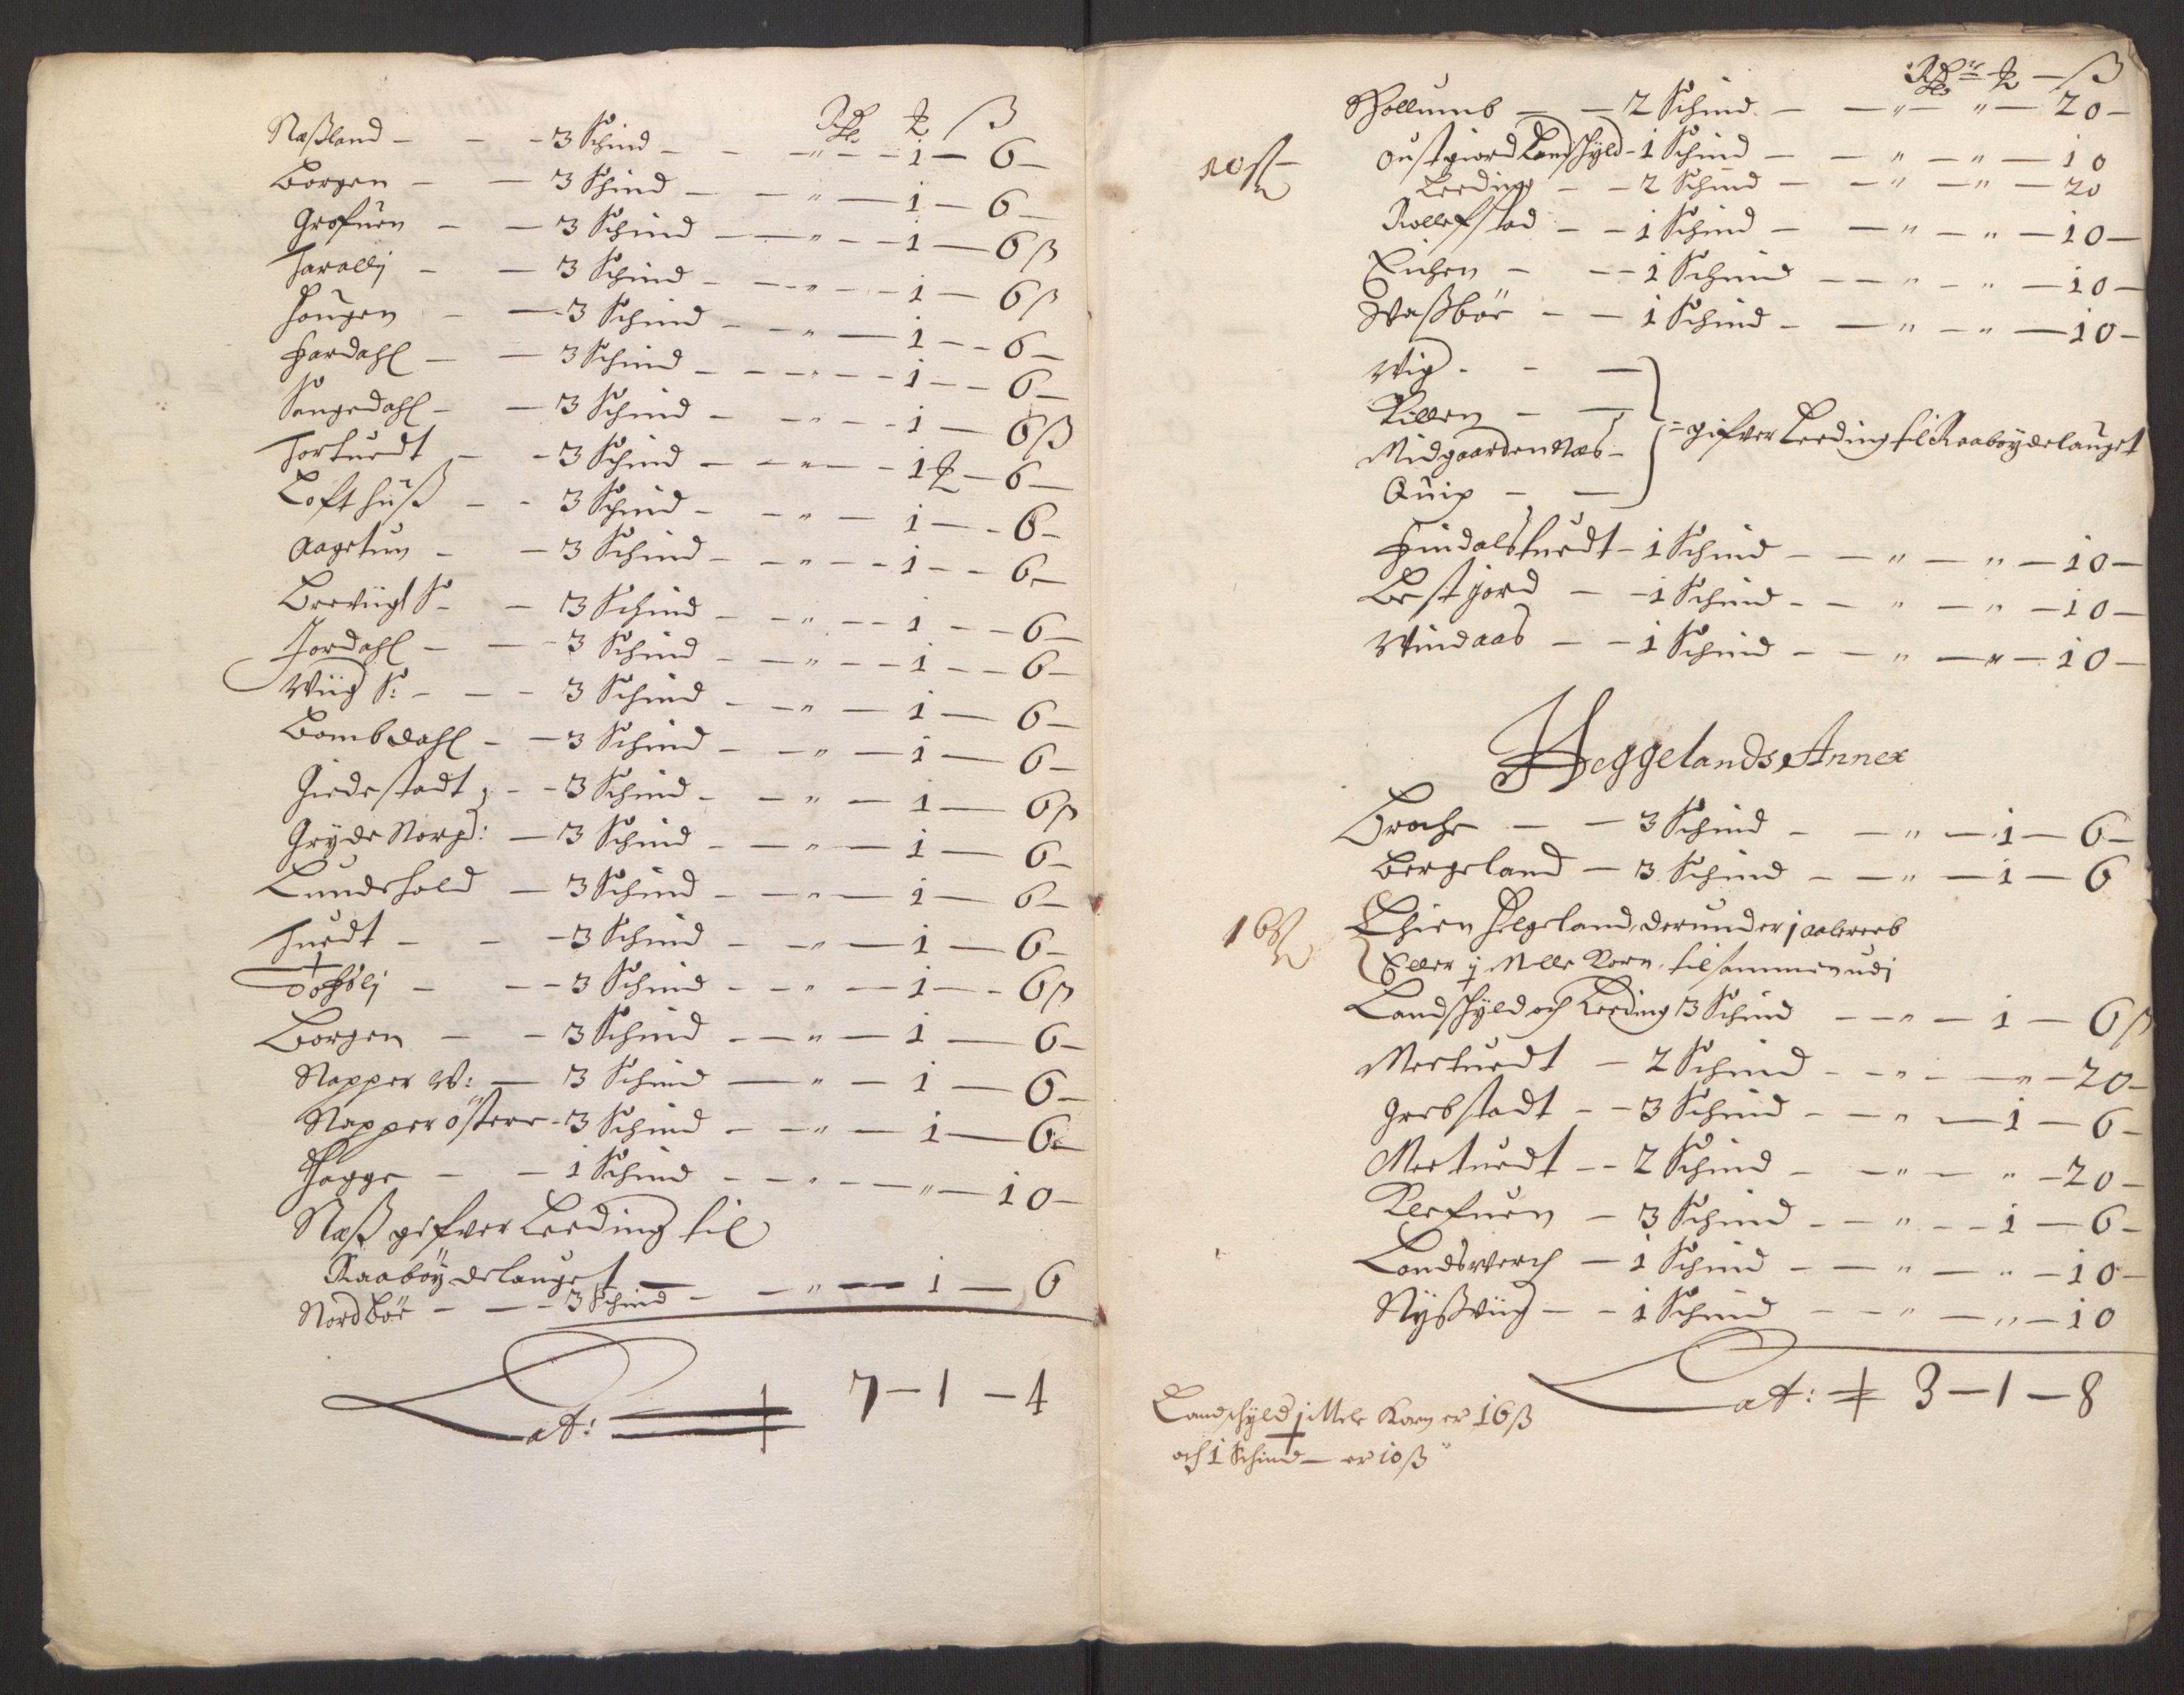 Rd ₰ ß
Næßland - - - 3 Schind - - - " - - 1 - 6 -
Borgen - - 3 Schind - - " - 1 - 6 -
Grofuen - - 3 Schind - - " - - 1 - 6 ß
Haralli - - 3 Schind - - " - - 1 - 6 ß
Hougen - - 3 Schind - - " - 1 - - 6 -
Hardahl - - 3 Schind - - " - - 1 - - 6 -
Songedahl - - 3 Schind - - " - - 1 - 6 ß
Tortuedt - - 3 Schind - - " - - 1 - 6 -
Lofthuß - - 3 Schind - - " - 1 - - 6 -
Aagetun - - 3 Schind - - " - - 1 - - 6 -
Breviigh S - - 3 Schind - - " - - 1 - - 6 -
Jordahl - - - 3 Schind - - " - - 1 - - 6 -
Wiig S: - - - 3 Schind - - " - 1 - 6 -
Bombdahl - - 3 Schind - - " - 1 - 6 -
Giedestadt - - 3 Schind - - " - 1 - 6 ß
Gryde Norg: - 3 Schind - - " - 1 - 6 -
Lundehold - 3 Schind - - " - 1 - 6 -
Tuedt - - - 3 Schind - - " - 1 - 6 -
- - - 3 Schind - - " - 1 - - 6 ß
Borgen - - 3 Schind - - " - 1 - 6 -
Napper W: - 3 Schind - " - 1 - 6 -
Napper östere - 3 Schind - - " - 1 - 6 -
Hegge - - 1 Schind - - " - - " - 10 -
Næß gifver Leeding til
Raabøydelauget
Nordbör - - - 3 Schind - - " - 1 - 6
Lat: 7 - 1 - 4
Rdr ₰ - ß
Hollumb - - 2 Schind - - " - " - 20 -
Oustgiord Landschyld - 1 Schind - - " - " - 10
10 ß
Leeding - - 2 Schind - - " - " - 20
Rollefstad - - 1 Schind - - " - " - 10 -
Eichen - - - 1 Schind - - " - " - 10 -
Waßbör - - 1 Schind - - " - " - 10 -
Wig - - -
Killen - -
Midgaarden Næs -
= gifver Leeding til Raabøydelauget
Quip - -
Hindalstuedt - 1 Schind - - " - " - 10 -
Bestjord - - 1 Schind - - " - " - 10 -
Windaas - - 1 Schind - - " - " - 10 -
Heggelands Annex
Broche - - 3 Schind - - " - 1 - 6 -
Bergeland - 3 Schind - - " - 1 - 6
16 ß
Helgeland, derunder j
Eller j Melle Korn, tilsammen udj
Landschyld och Leeding 3 Schind - - " - 1 - 6 ß
Mortuedt - 2 Schind - - " - - " - 20 -
Grebstadt - - 3 Schind - - " - 1 - 6 -
Moetuedt - - 2 Schind - - " - " - 20 -
Klefuen - 3 Schind - - " - - 1 - 6 -
Landsverch - 1 Schind - - " - " - 10 -
Nyßviig - - 1 Schind - - " - " - 10
Lat: 3 - 1 - 8
Landschyld j Mele Korn er 16 ß
och 1 Schind - er 10 ß